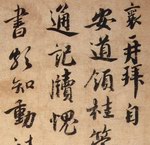 襄再拜自
安道領桂管
通記牘愧
書頗知動